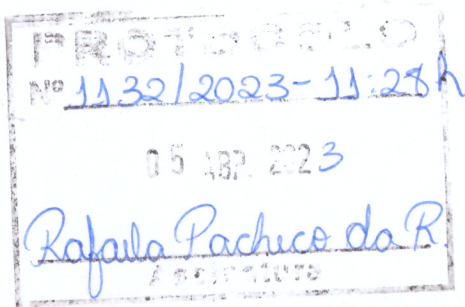 PROTOCOLO
Nº 1132/2023-11:28h
05 ABR. 2023
Rafaela Pacheco da R.
Assinatura